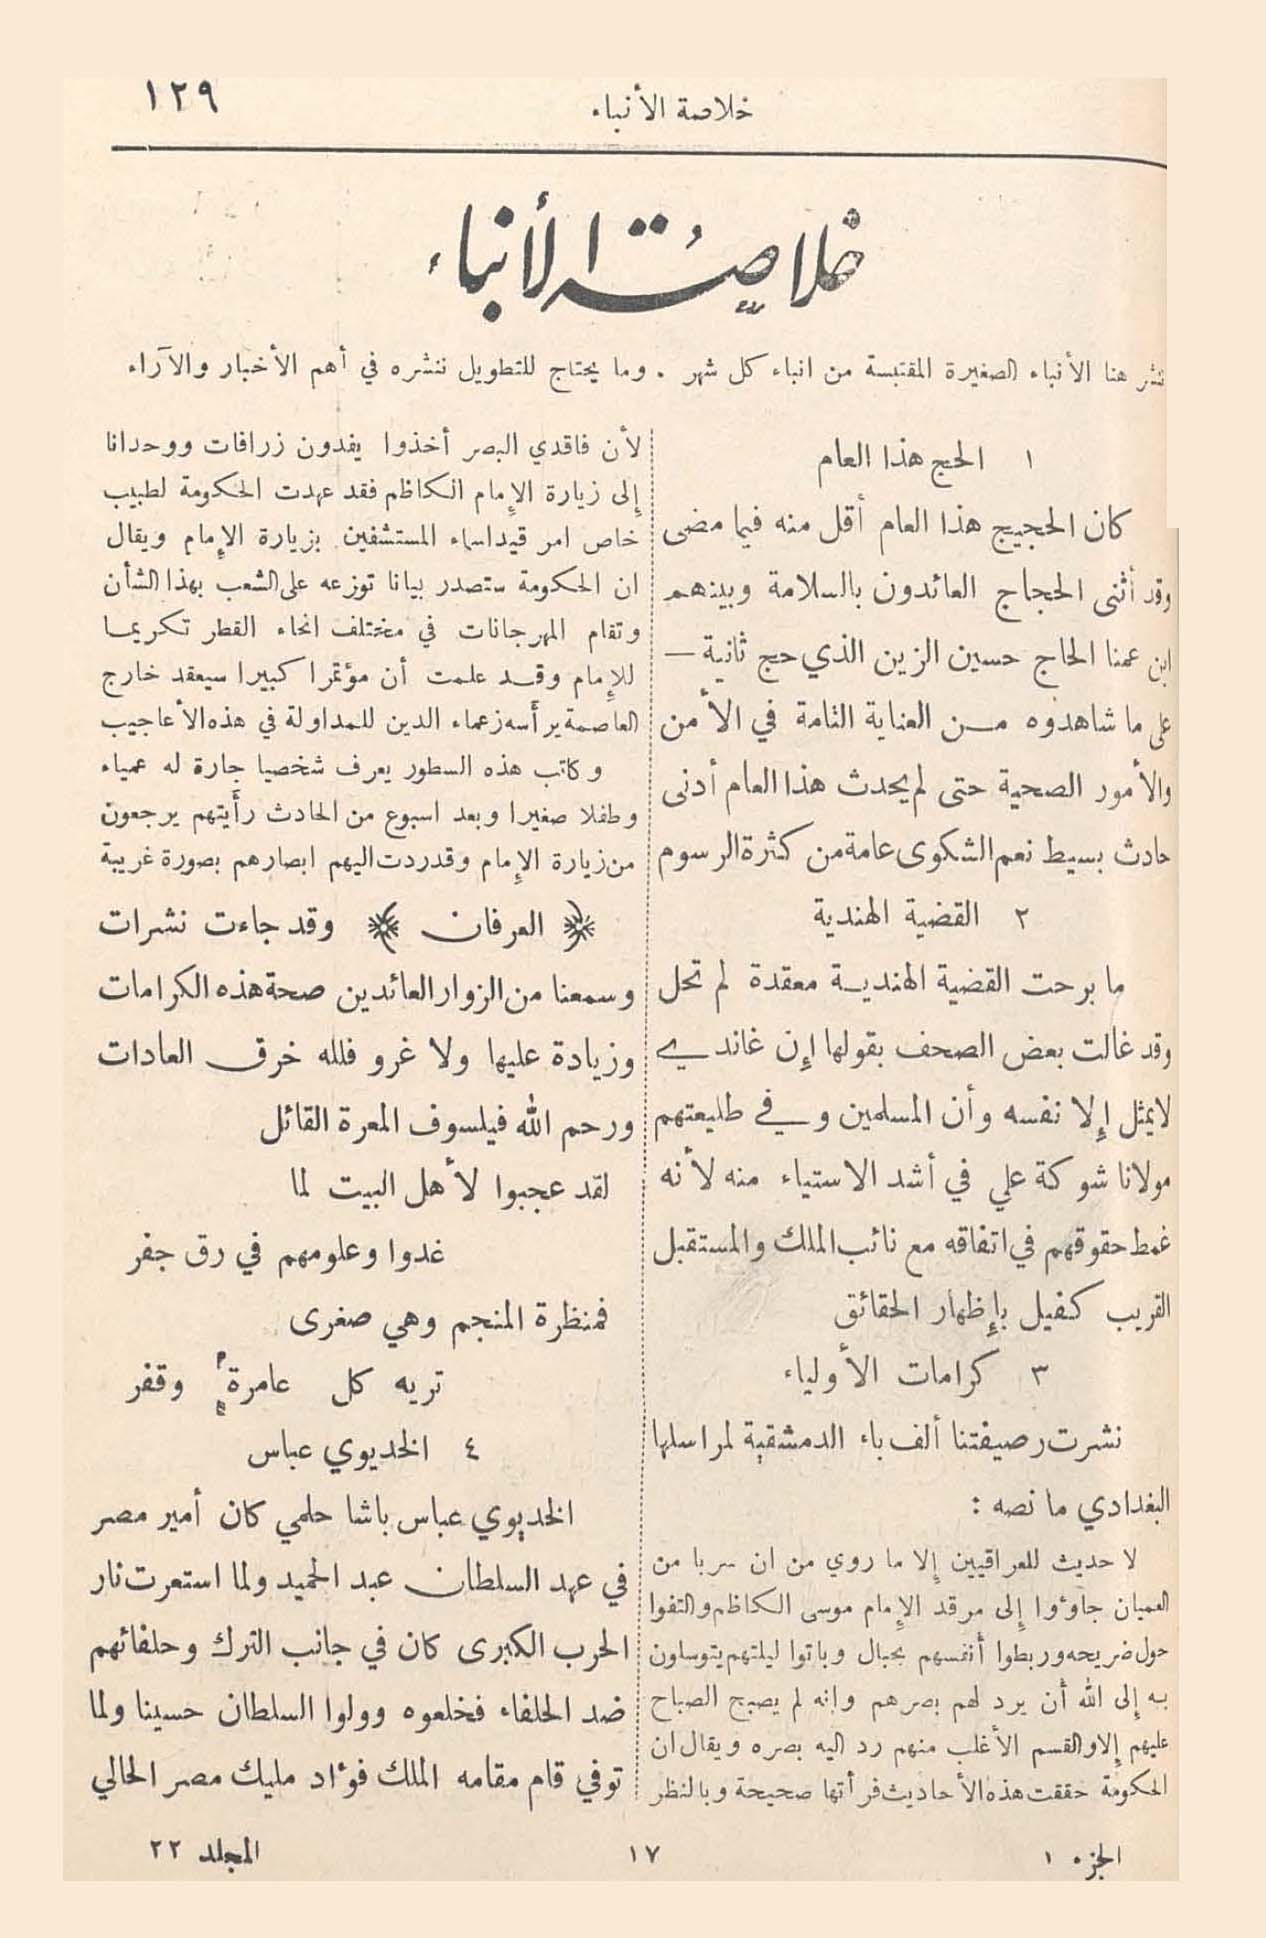 خلاصة الأنباء
١٢٩
خلاصة الأنباء
ننشر هنا الأنباء الصغيرة المقتبسة من انباء كل شهر . وما يحتاج للتطويل ننشره في أهم الأخبار والآراء
١ الحج هذا العام
كان الحجيج هذا العام أقل منه فيما مضى
وقد أثنى الحجاج العائدون بالسلامة وبينهم
ابن عمنا الحاج حسين الزين الذي حج ثانية —
على ما شاهدوه من العناية التامة في الأمن
والأمور الصحية حتى لم يحدث هذا العام أدنى
حادث بسيط نعم الشكوى عامة من كثرة الرسوم
٢ القضية الهندية
ما برحت القضية الهندية معقدة لم تحل
وقد غالت بعض الصحف بقولها إن غاندي
لا يمثل إلا نفسه وأن المسلمين وفي طليعتهم
مولانا شوكة علي في أشد الاستياء منه لأنه
غمط حقوقهم في اتفاقه مع نائب الملك والمستقبل
القريب كفيل بإظهار الحقائق
٣ كرامات الأولياء
نشرت رصيفتنا ألف باء الدمشقية لمراسلها
البغدادي ما نصه :
لا حديث للعراقيين إلا ما روي من ان سربا من
العميان جاوءوا إلى مرقد الإمام موسى الكاظم والتفوا
حول ضريحه وربطوا أنفسهم بحبال وباتوا ليلتهم يتوسلون
به إلى الله أن يرد لهم بصرهم وإنه لم يصبح الصباح
عليهم إلا والقسم الأغلب منهم رد اليه بصره ويقال ان
الحكومة حققت هذه الأحاديث فرأتها صحيحة وبالنظر
لأن فاقدي البصر أخذوا يفدون زرافات ووحدانا
إلى زيارة الإمام الكاظم فقد عهدت الحكومة لطبيب
خاص امر قيد اسماء المستشفين بزيارة الإمام ويقال
ان الحكومة ستصدر بيانا توزعه على الشعب بهذا الشأن
وتقام المهرجانات في مختلف انحاء القطر تكريما
للإمام وقد علمت أن مؤتمرا كبيرا سيعقد خارج
العاصمة يرأسه زعماء الدين للمداولة في هذه الأعاجيب
وكاتب هذه السطور يعرف شخصيا جارة له عمياء
وطفلا صغيرا وبعد اسبوع من الحادث رأيتهم يرجعون
من زيارة الإمام وقد ردت اليهم ابصارهم بصورة غريبة
﴿ العرفان ﴾ وقد جاءت نشرات
وسمعنا من الزوار العائدين صحة هذه الكرامات
وزيادة عليها ولا غرو فلله خرق العادات
ورحم الله فيلسوف المعرة القائل
لقد عجبوا لأهل البيت لما
غدوا وعلومهم في رق جفر
فمنظرة المنجم وهي صغرى
تريه كل عامرة وقفر
٤ الخديوي عباس
الخديوي عباس باشا حلمي كان أمير مصر
في عهد السلطان عبد الحميد ولما استعرت نار
الحرب الكبرى كان في جانب الترك وحلفائهم
ضد الحلفاء فخلعوه وولوا السلطان حسينا ولما
توفي قام مقامه الملك فوءاد مليك مصر الحالي
الجزء ١
١٧
المجلد ٢٢